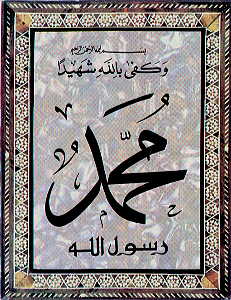 بسم الله الرحمن الرحيم
وكفى بالله شهيدًا
محمد
رسول الله